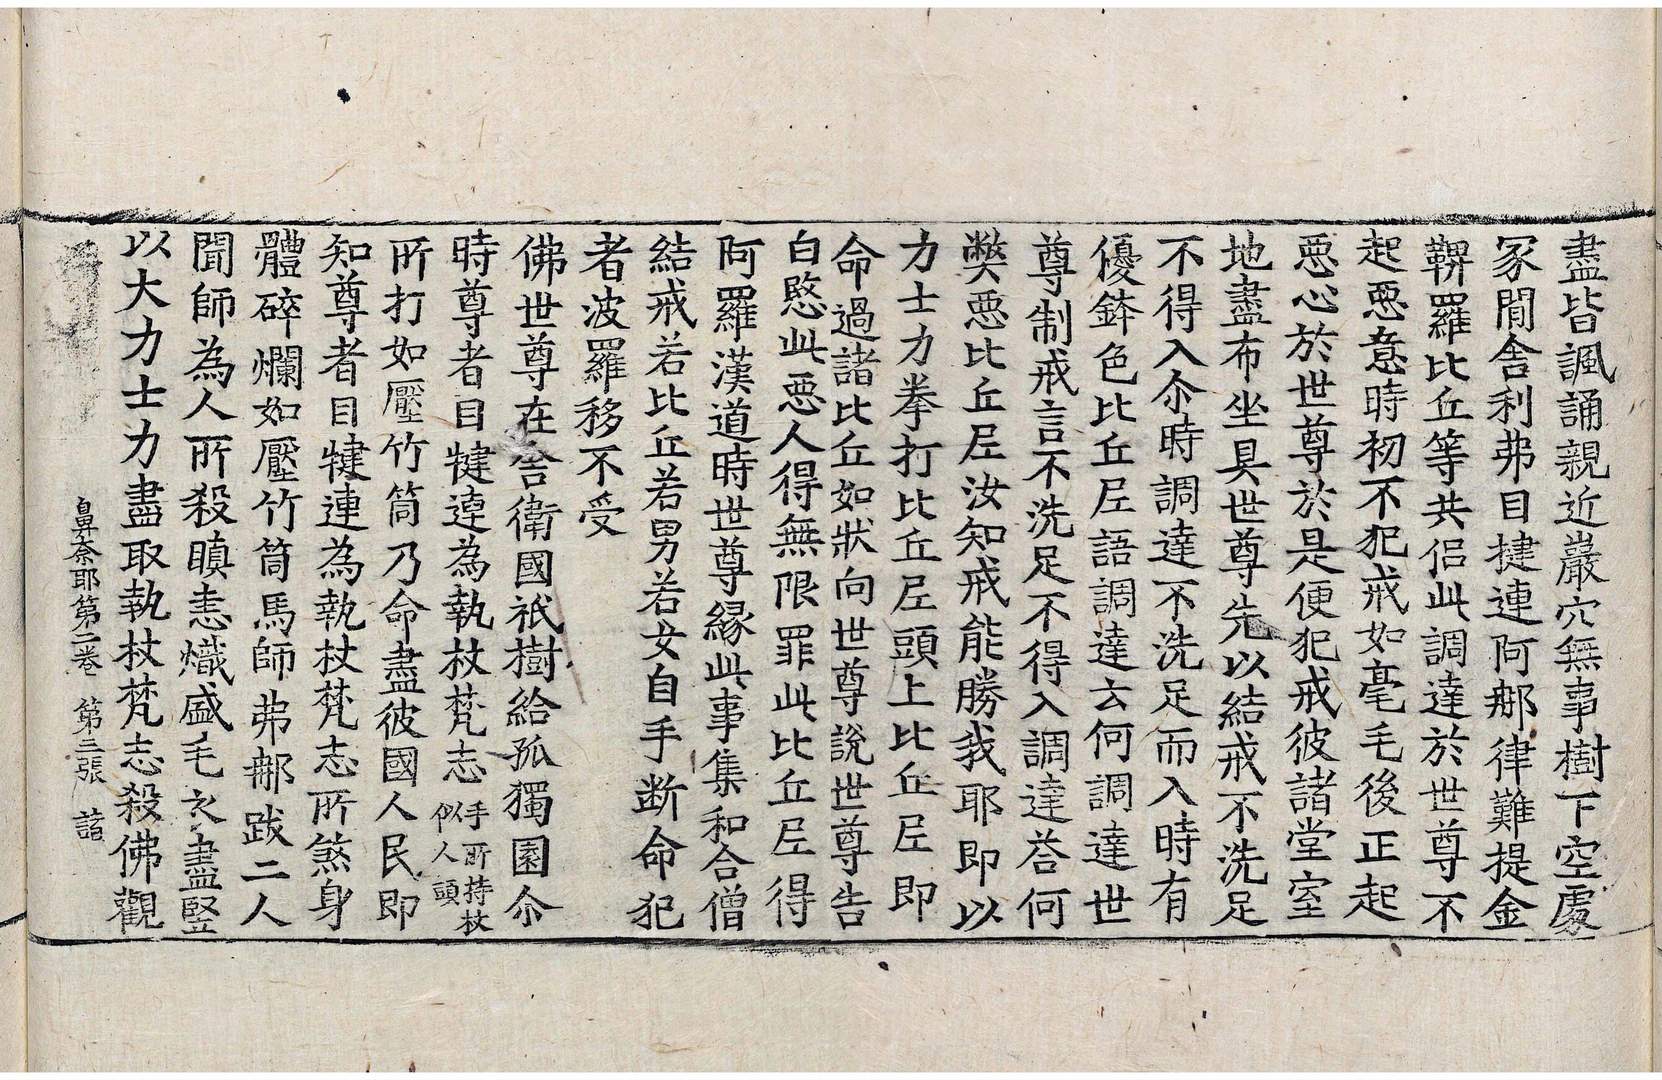 盡皆諷誦親近巖穴無事樹下空處
冢閒舍利弗目揵連阿那律難提金
鞞羅比丘等共侣此調達於世尊不
起惡意時初不犯戒如毫毛後正起
惡心於世尊於是便犯戒彼諸堂室
地盡布坐具世尊先以結戒不洗足
不得入尒時調達不洗足而入時有
優鉢色比丘尼語調達云何調達世
尊制戒言不洗足不得入調達荅何
弊惡比丘尼汝知戒能勝我耶即以
力士力拳打比丘尼頭上比丘尼即
命過諸比丘如狀向世尊說世尊告
白愍此惡人得無限罪此比丘尼得
阿羅漢道時世尊緣此事集和合僧
結戒若比丘若男若女自手断命犯
者波羅移不受
佛世尊在舍衛國祇樹給孤獨園尒
時尊者目犍連為執杖梵志手所持杖似人頭
所打如壓竹筒乃命盡彼國人民即
知尊者目犍連為執杖梵志所煞身
體碎爛如壓竹筒馬師弗那跋二人
聞師為人所殺瞋恚熾盛毛衣盡竪
以大力士力盡取執杖梵志殺佛觀
鼻奈耶第二卷 第三張 諸